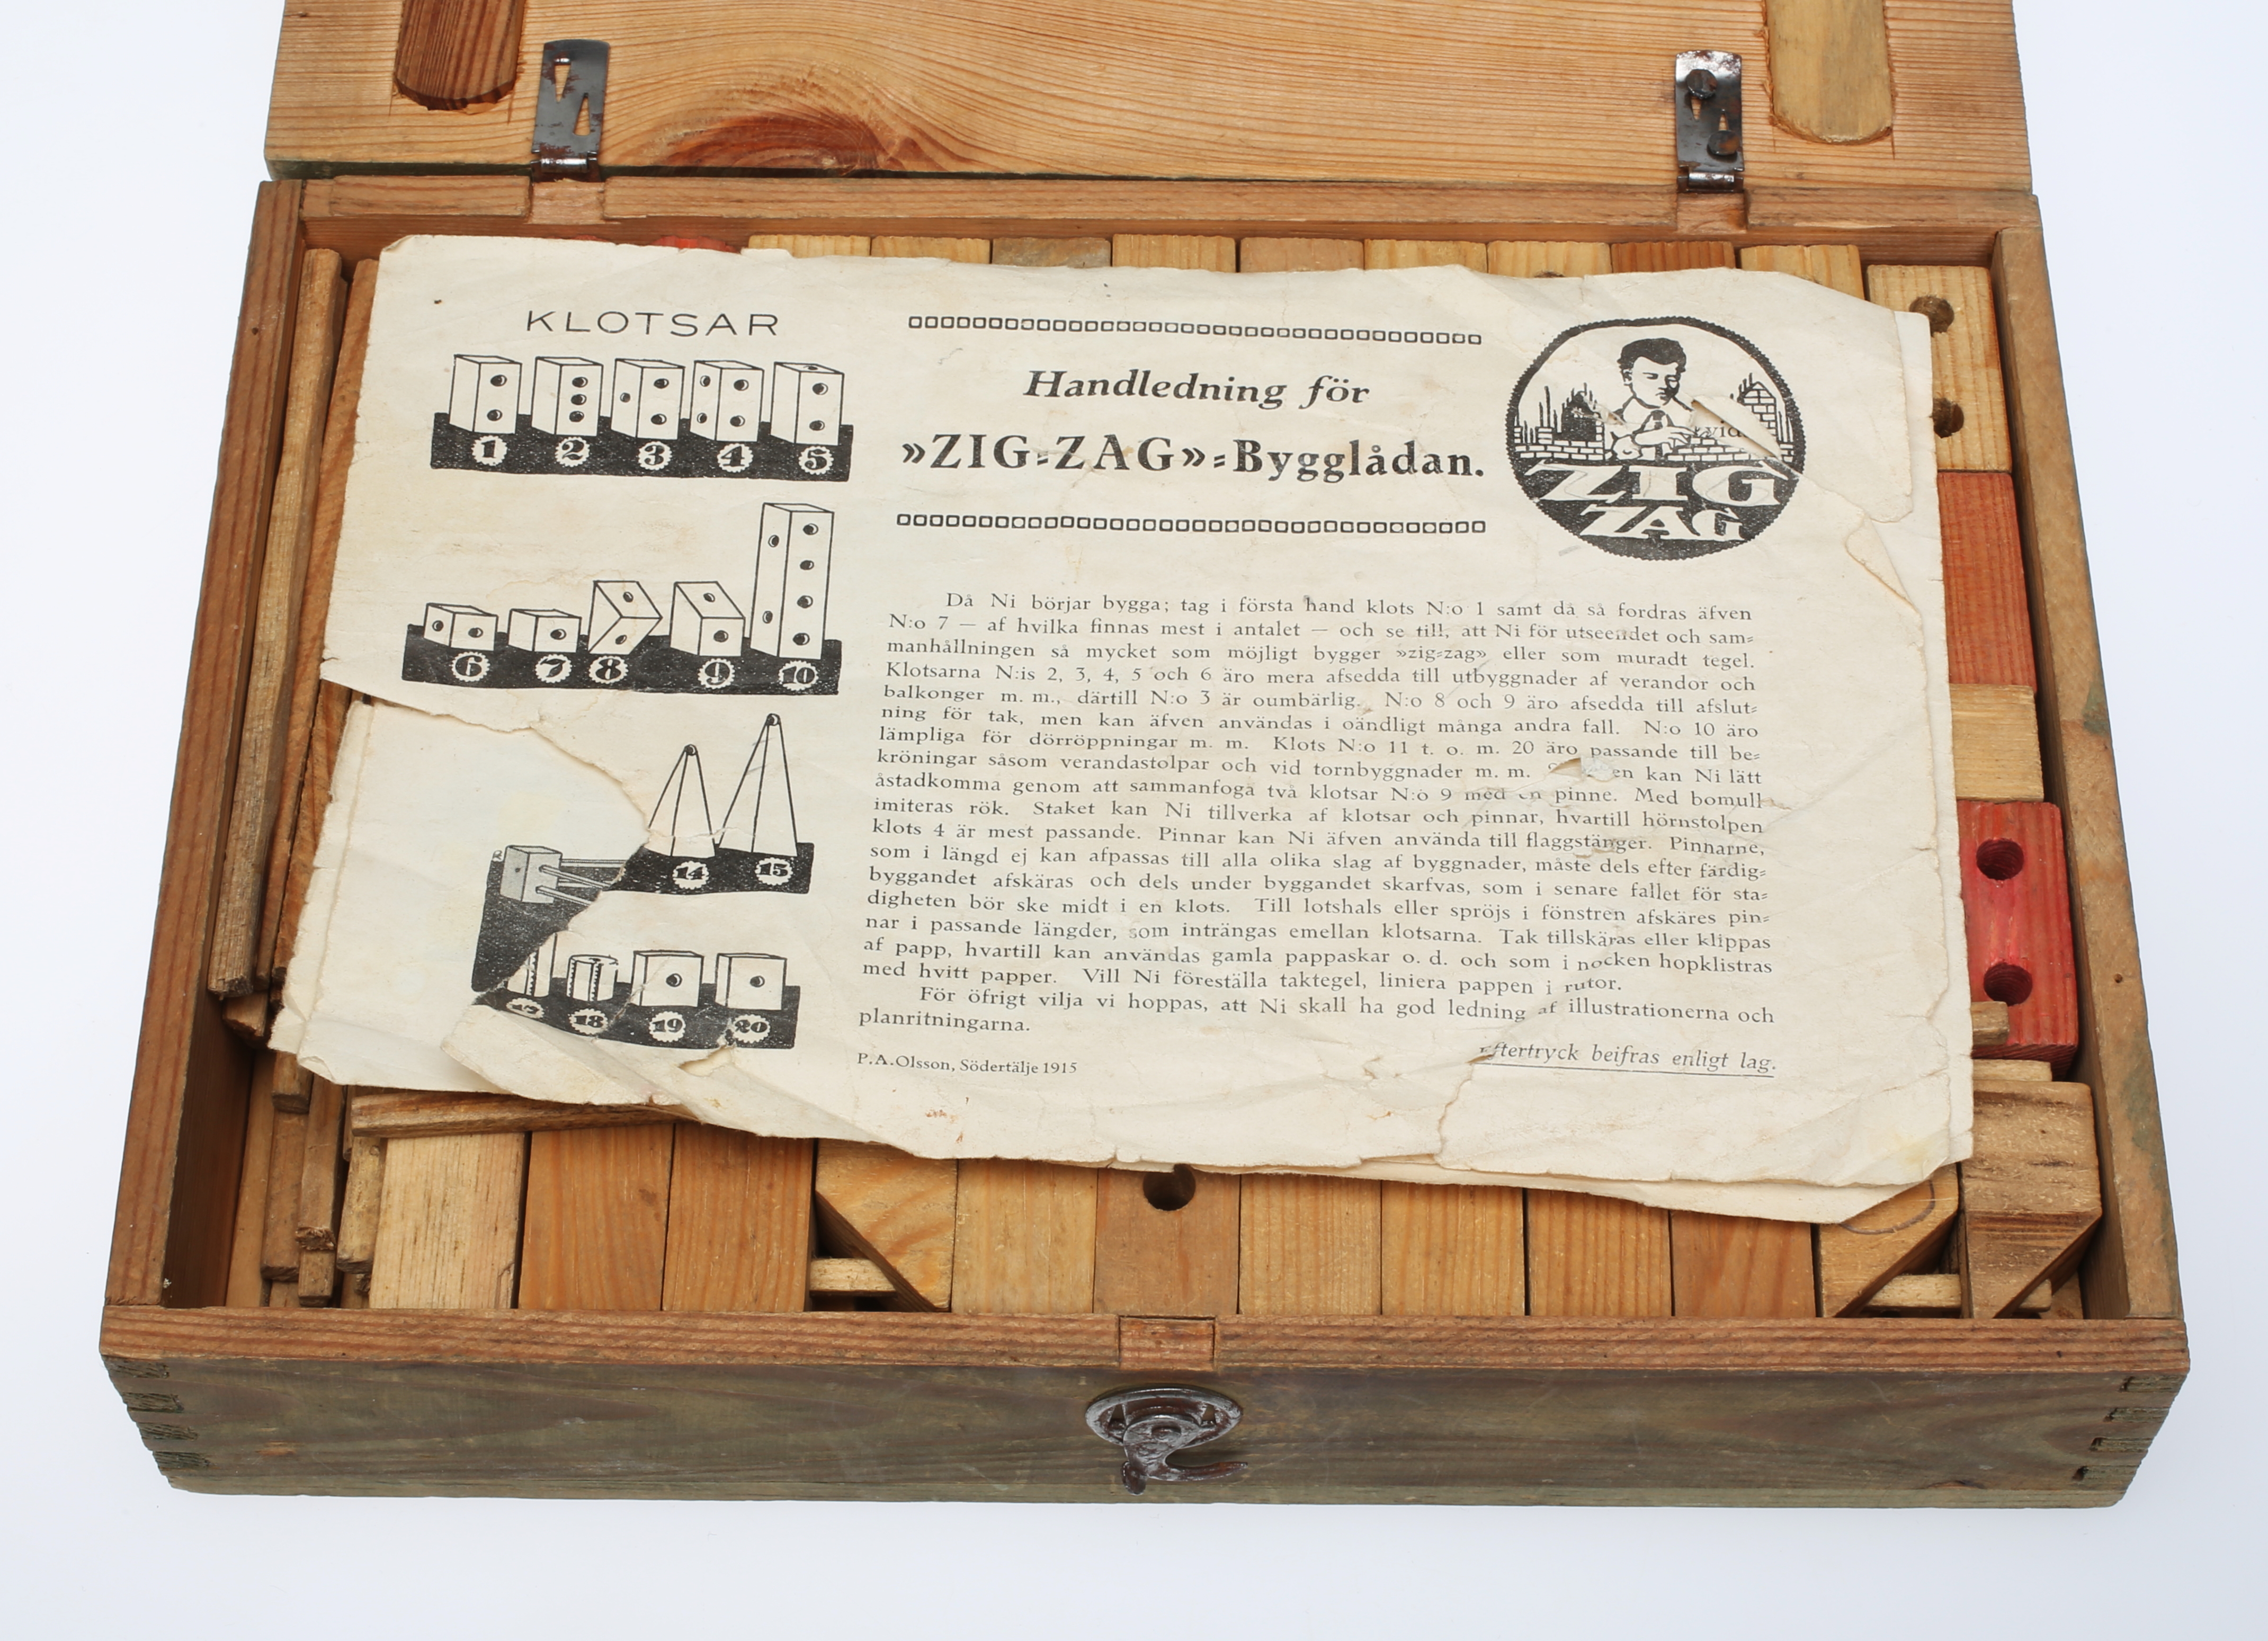 KLOTSAR
1 2 3 4 5
6 7 8 9 10
14 15
17 18 19 20
Handledning för
»ZIG-ZAG»-Bygglådan.
vid
ZIG
ZAG
Då Ni börjar bygga; tag i första hand klots N:o 1 samt då så fordras äfven
N:o 7 — af hvilka finnas mest i antalet — och se till, att Ni för utseendet och sam-
manhållningen så mycket som möjligt bygger »zig-zag» eller som muradt tegel.
Klotsarna N:is 2, 3, 4, 5 och 6 äro mera afsedda till utbyggnader af verandor och
balkonger m. m., därtill N:o 3 är oumbärlig. N:o 8 och 9 äro afsedda till afslut-
ning för tak, men kan äfven användas i oändligt många andra fall. N:o 10 äro
lämpliga för dörröppningar m. m. Klots N:o 11 t. o. m. 20 äro passande till be-
kröningar såsom verandastolpar och vid tornbyggnader m. m. en kan Ni lätt
åstadkomma genom att sammanfoga två klotsar N:o 9 med en pinne. Med bomull
imiteras rök. Staket kan Ni tillverka af klotsar och pinnar, hvartill hörnstolpen
klots 4 är mest passande. Pinnar kan Ni äfven använda till flaggstänger. Pinnarne,
som i längd ej kan afpassas till alla olika slag af byggnader, måste dels efter färdig-
byggandet afskäras och dels under byggandet skarfvas, som i senare fallet för sta-
digheten bör ske midt i en klots. Till lotshals eller spröjs i fönstren afskäres pin-
nar i passande längder, som inträngas emellan klotsarna. Tak tillskäras eller klippas
af papp, hvartill kan användas gamla pappaskar o. d. och som i nocken hopklistras
med hvitt papper. Vill Ni föreställa taktegel, liniera pappen i rutor.
För öfrigt vilja vi hoppas, att Ni skall ha god ledning af illustrationerna och
planritningarna.
P.A.Olsson, Södertälje 1915
Eftertryck beifras enligt lag.